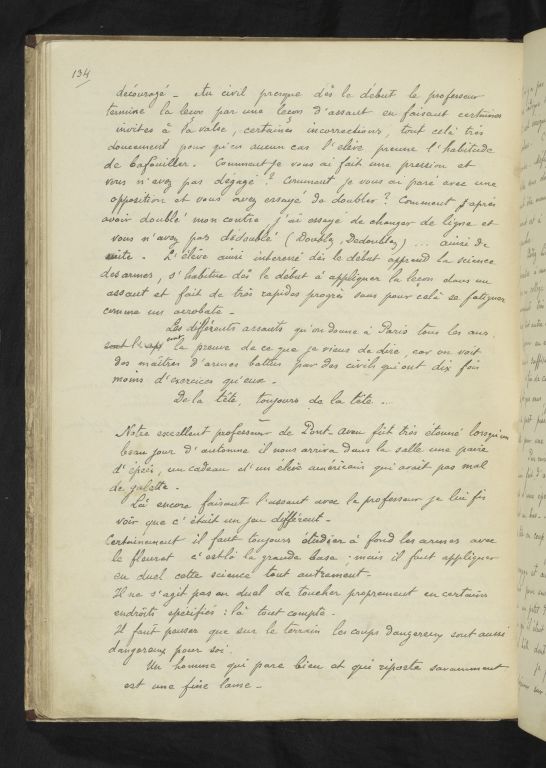 134
découragé - Au civil presque dès le début le professeur
termine la leçon par une leçon d'assaut en faisant certaines
invites à la valse, certaines incorrections, tout celà très
doucement pour qu'en aucun cas l'élève prenne l'habitude
de bafouiller. Comment je vous ai fait une pression et
vous n'avez pas dégagé ? Comment je vous ai paré avec une
opposition et vous avez essayé de doubler ? Comment, j'après
avoir doublé mon contre j'ai essayé de changer de ligne et
vous n'avez pas dédoublé (Doublez, Dedoublez) ... ainsi de
suite. L'élève ainsi interessé dès le début apprend la science
des armes, s'habitue dès le début à appliquer la leçon dans un
assaut et fait de très rapides progrès sans pour celà se fatiguer
comme un acrobate -
Les différents assauts qu'on donne à Paris tous les ans
sont la preuve de ce que je viens de dire, car on voit
des maîtres d'armes battus par des civils qui ont dix fois
moins d'exercices qu'eux -
De la tête, toujours de la tête ...
Notre excellent professeur de Pont-Aven fut très étonné lorsqu'un
beau jour d'automne il nous arriva dans la salle une paire
d'épées, un cadeau d'un élève américain qui avait pas mal
de galette -
Là encore faisant l'assaut avec le professeur je lui fis
voir que c'était un jeu différent -
Certainement il faut toujours étudier à fond les armes avec
le fleuret c'est là la grande base ; mais il faut appliquer
en duel cette science tout autrement -
Il ne s'agit pas en duel de toucher proprement en certains
endroits spécifiés : là tout compte -
Il faut penser que sur le terrain les coups dangereux sont aussi
dangereux pour soi.
Un homme qui pare bien et qui riposte savamment
est une fine lame -